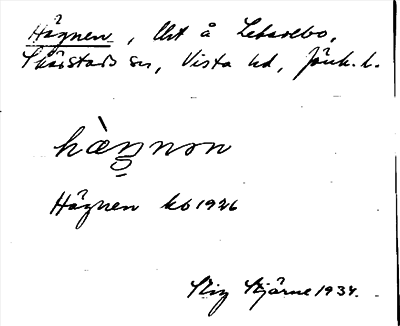 Hägnen, Utt å Lekarebo,
Skärstads sn, Vista hd, Jönk. l.
hàŋnon
Hägnen kb 1926
Stig Stjärne 1934.